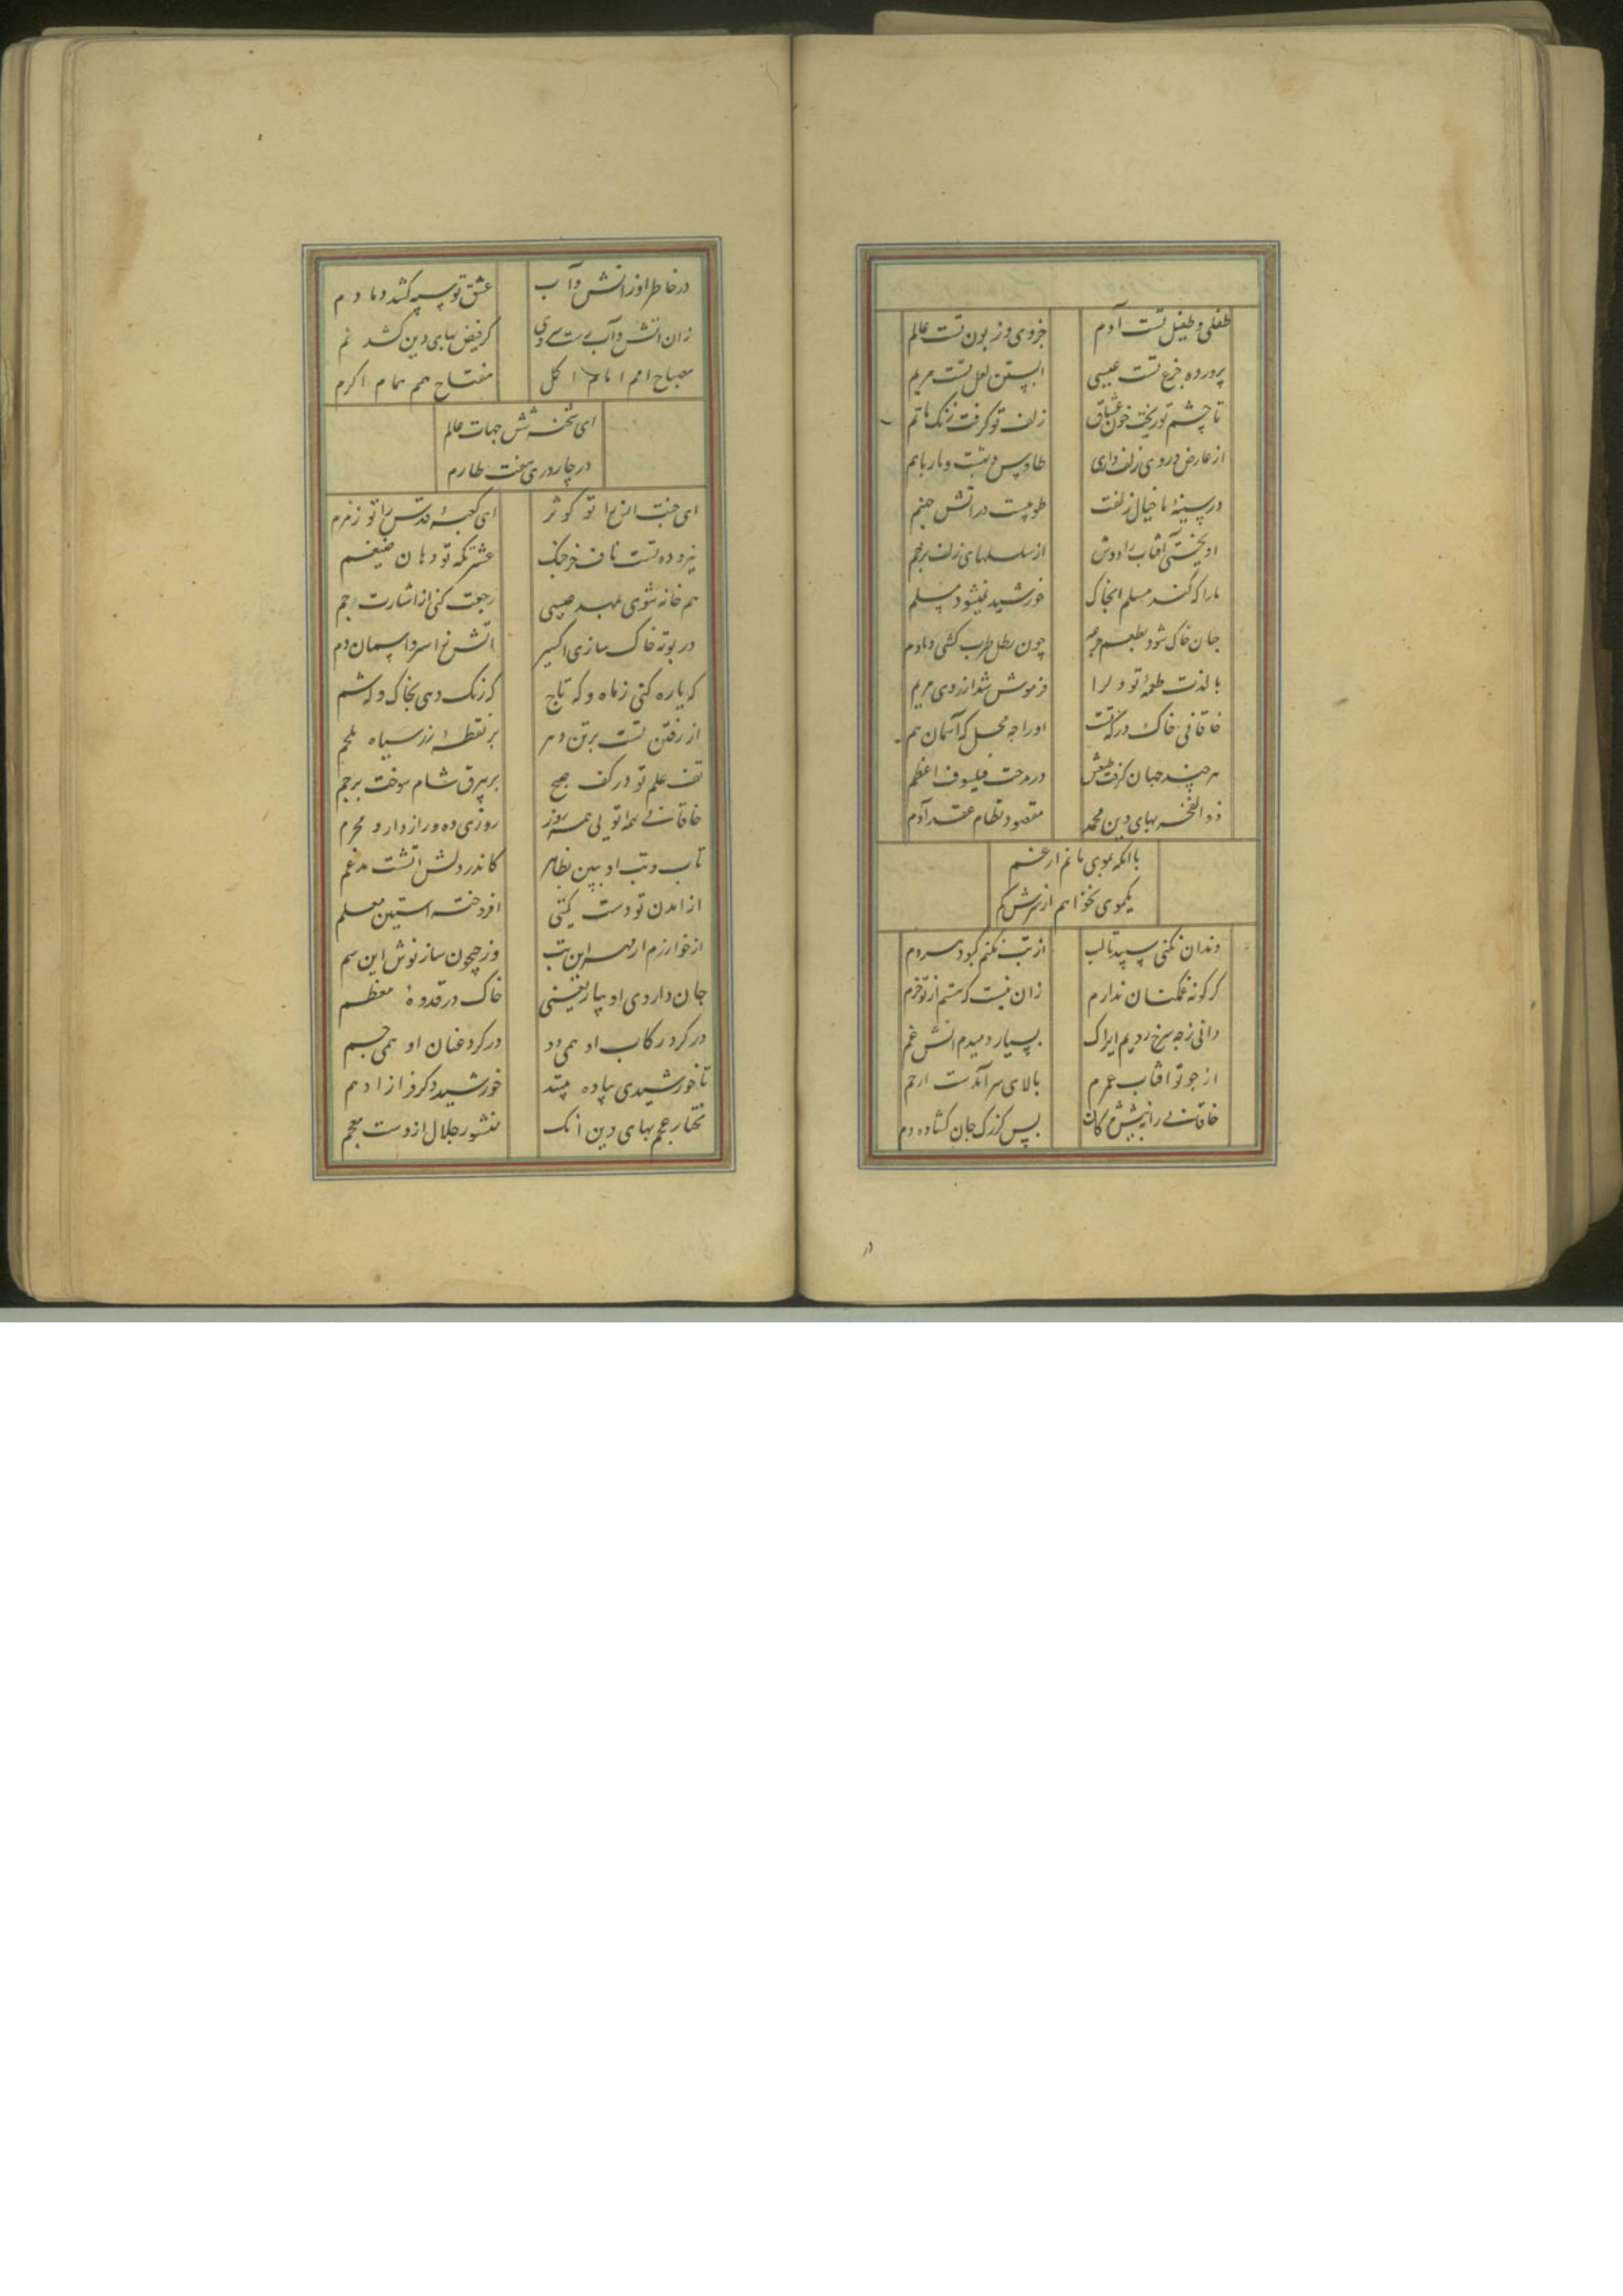 طفلی و طفیل تست آدم
خردی و زبون تست عالم
پرورده جزع تست عیسی
ابستن لعل تست مریم
تا چشم تو ریخت خون عشاق
زلف تو گرفت رنگ ماتم
از عارض و روی و زلف داری
طاوس و بهشت و مار باهم
در سینهٔ ما خیال زلفت
طوبیست در اتش جهنم
اویختی آفتاب را دوش
از سلسلهای زلف پرخم
ما را که کند مسلم انجا ک
خورشید نمیشود مسلم
جان خاک شود بطمع جرعه
چون رطل طرب کشی دمادم
با لذت طعمهٔ تو دلرا
فرموش شد ارزوی مریم
خاقانی خاک درکه تست
او را چه محل که آسمان هم
هر چند جهان کرفت طبعش
در مدحت فیلسوف اعظم
ذو الفخر بهای دین محمد
مقصود نظام عقد آدم
با انکه بموی مانم از غم
یکموی نخواهم از سرش کم
دندان نکنی سپید تا لب
از تب نکنم کبود هر دم
کر کونه غمکنان ندارم
زان نیست که هستم از تو خرم
دانی ز چه سرخ رویم ایراک
بسیار دمیدم اتش غم
از جو تو افتاب عمرم
بالای سر آمدست ارحم
خاقانی را به نیش مژکان
بس کزرک جان کشاده دم
در
در خاطر او ز اتش و آب
عشق تو سپه کشد دمادم
زان اتش و آب
کر فیض بهای دین کشد نم
مصباح امم امام اکمل
مفتاح همم همام اکرم
ای تحفه شش جهات عالم
در چار دری هفت طارم
ای جنت انس را تو کوثر
ای کعبهٔ قدس را تو زمزم
نیرو ده تست ناف خرچنک
عشرتکه تو دهان ضیغم
هم خانه شوی بمهد عیسی
رجعت کنی از اشارت جم
در بوته خاک سازی اکسیر
اتش ز اسد و اسمان دم
که یاره کنی ز ماه و که تاج
که رنک دهی بخاک و که شم
از رفتن تست بر تن دهر
بر نقطهٔ زر سیاه ملحم
تف علم تو در کف صبح
بر بیرق شام سوخت پرچم
خاقانی همه تویی همه روز
روزی ده و رازدار و محرم
تاب و تب او ببین بظاهر
کاندر دلش اتشست مدغم
از امدن تو دست کیتی
افروخته استین معلم
از خوارزم ار بهر این تب
وز جیحون ساز نوش این سم
جان داروی او بیار یعنی
خاک در قدوهٔ معظم
در کرد رکاب او همی دو
در کرد عنان او همی جم
تا خورشیدی پیاده بینند
خورشید دکر فراز ادهم
مختار عجم بهای دین انک
منشور جلال ازوست معجم